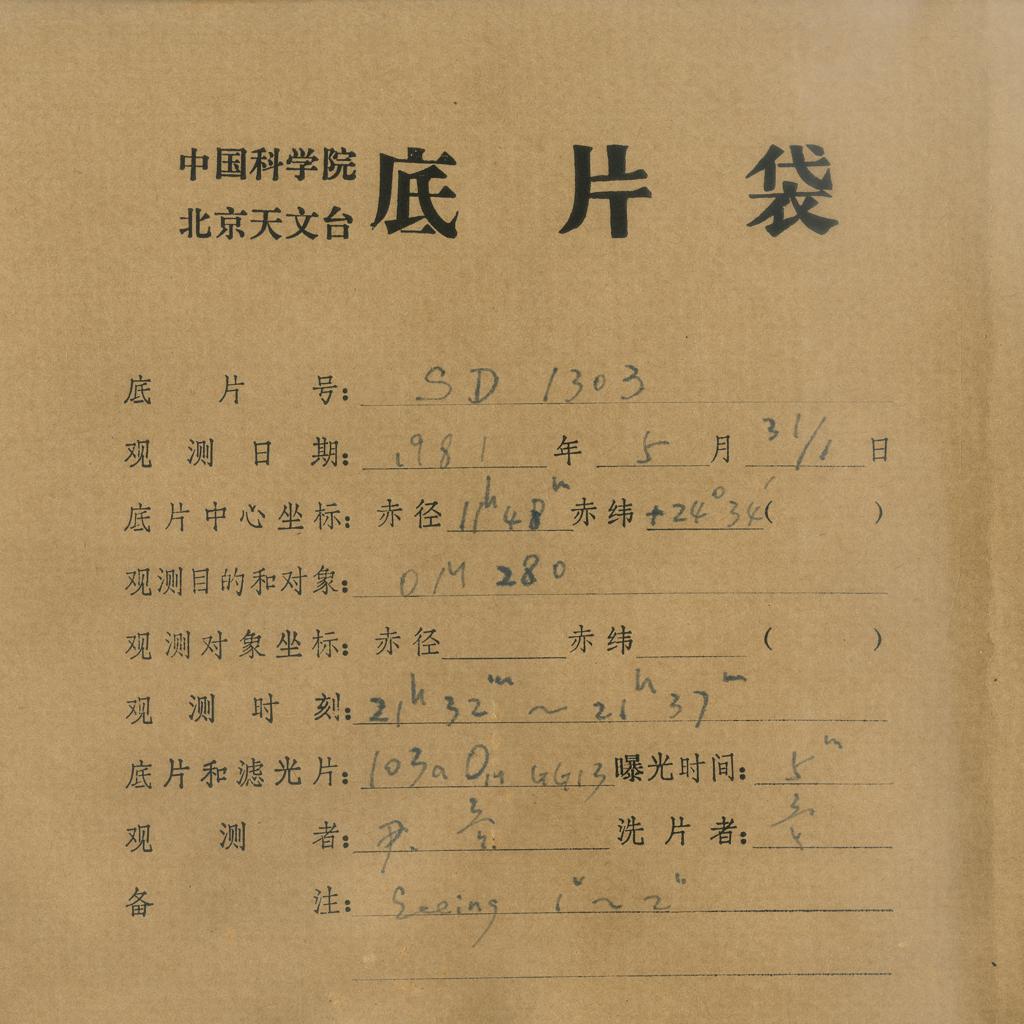 中国科学院
北京天文台
底片袋
底片号: SD 1303
观测日期: 1981 年 5 月 31/1 日
底片中心坐标: 赤径 11h48m 赤纬 +24°34′( )
观测目的和对象: OM 280
观测对象坐标: 赤径 赤纬 ( )
观测时刻: 21h32m ~ 21h37m
底片和滤光片: 103aO GG13 曝光时间: 5m
观测者: 尹. 洗片者:
备注: Seeing 1″~2″